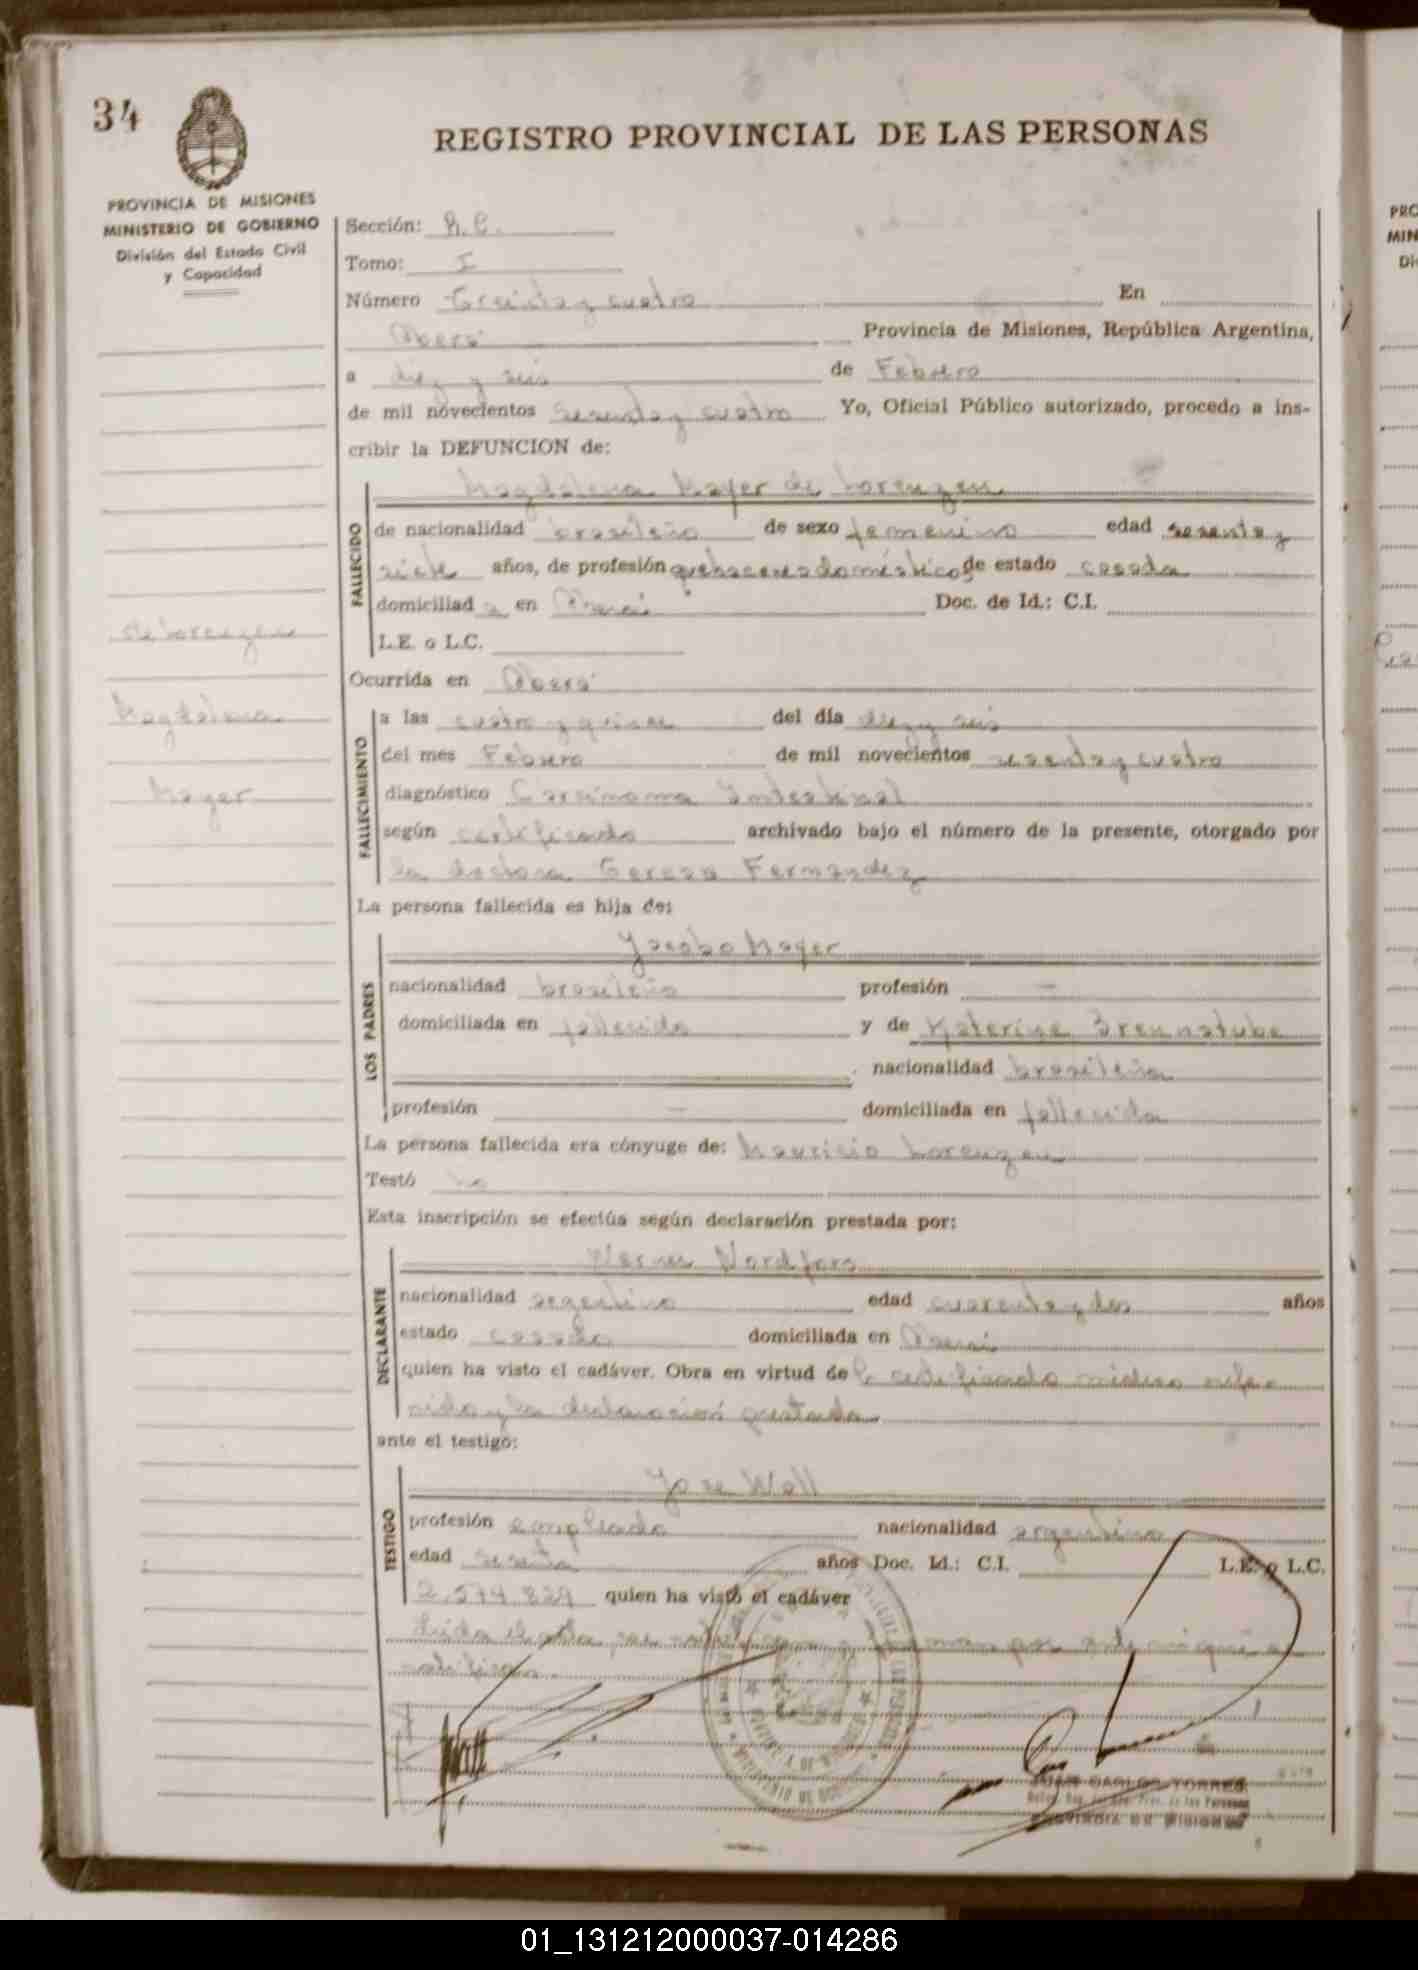 34
REGISTRO PROVINCIAL DE LAS PERSONAS
PROVINCIA DE MISIONES
MINISTERIO DE GOBIERNO
División del Estado Civil
y Capacidad
Sección: R.C.
Tomo: I
Número Treinta y cuatro En
Oberá Provincia de Misiones, República Argentina,
a diez y seis de Febrero
de mil novecientos sesenta y cuatro Yo, Oficial Público autorizado, procedo a ins-
cribir la DEFUNCION de:
Magdalena Mayer de Lorenzen
FALLECIDO
de nacionalidad brasileña de sexo femenino edad sesenta y
siete años, de profesión quehaceres domésticos de estado casada
domiciliad a en Oberá Doc. de Id.: C.I.
L.E. o L.C.
de Lorenzen
Magdalena
Mayer
Ocurrida en Oberá
FALLECIMIENTO
a las cuatro y quince del día diez y seis
del mes Febrero de mil novecientos sesenta y cuatro
diagnóstico Carcinoma Intestinal
según certificado archivado bajo el número de la presente, otorgado por
la doctora Teresa Fernández
La persona fallecida es hija de:
LOS PADRES
Jacobo Mayer
nacionalidad brasileño profesión —
domiciliada en fallecido y de Katerine
nacionalidad brasileña
profesión — domiciliada en fallecida
La persona fallecida era cónyuge de: Mauricio Lorenzen
Testó no
Esta inscripción se efectúa según declaración prestada por:
DECLARANTE
Werner
nacionalidad argentino edad cuarenta y dos años
estado casado domiciliada en Oberá
quien ha visto el cadáver. Obra en virtud de certificado médico refe-
rido y la declaración prestada
ante el testigo:
TESTIGO
Jose Wall
profesión empleado nacionalidad argentino
edad años Doc. Id.: C.I. L.E. o L.C.
2.574.829 quien ha visto el cadáver
Leida el acta, se ratifican y firman por ante mí que
certifico.
JUAN CARLOS TORRES
PROVINCIA DE MISIONES
01_131212000037-014286